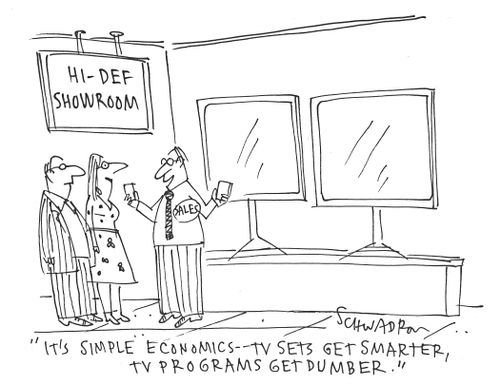 HI-DEF
SHOWROOM
SALES
SCHWADRON
"IT'S SIMPLE ECONOMICS--TV SETS GET SMARTER,
TV PROGRAMS GET DUMBER."